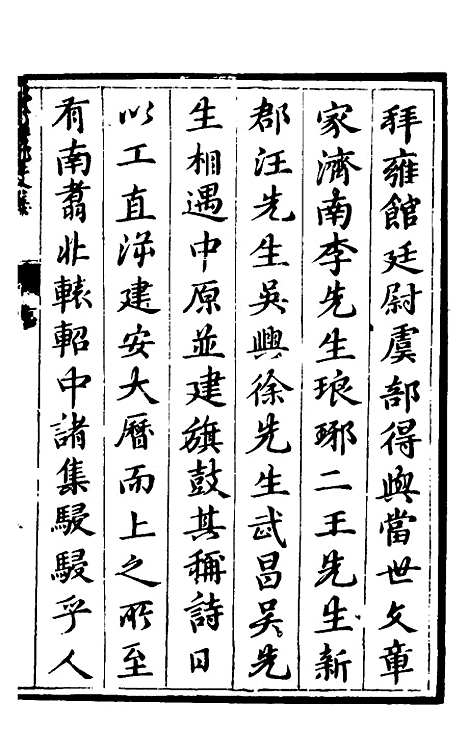 拜雍館廷尉虞部得與當世文章
家濟南李先生琅琊二王先生新
都汪先生吳興徐先生武昌吳先
生相遇中原並建旗鼓其稱詩日
以工直泝建安大曆而上之所至
有南翥北轅軺中諸集駸駸乎人